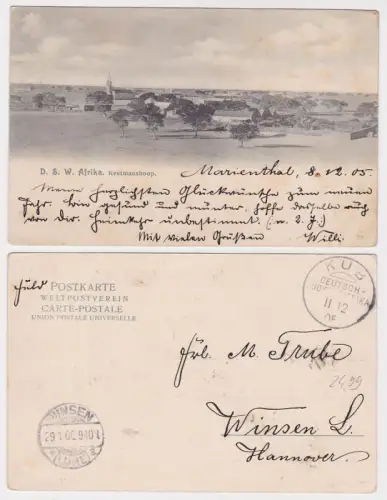 D. S. W. Afrika. Keetmanshoop.
Marienthal, 8. 12. 05.
Meine herzlichsten Glückwünsche zum neuen
Jahr. Bin gesund und munter, hoffe dasselbe auch
von Dir. Heimkehr unbestimmt. (n. 2. J.)
Mit vielen Grüßen Willi.
Feld POSTKARTE
WELTPOSTVEREIN
CARTE-POSTALE
UNION POSTALE UNIVERSELLE
KUB
DEUTSCH-
11 12
05
Frl. M. Trube
24,99
Winsen L.
Hannover.
WINSEN
29.1.06. 9-10V
(LUHE)